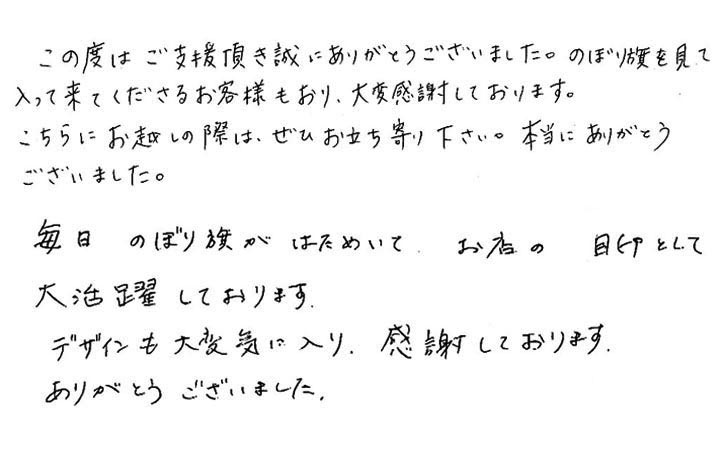 この度は ご支援頂き誠にありがとうございました。のぼり旗を見て
入って来てくださるお客様もおり、大変感謝しております。
こちらにお越しの際は、ぜひお立ち寄り下さい。本当にありがとう
ございました。
毎日 のぼり旗が はためいて、お店の 目印として
大活躍しております。
デザインも大変気に入り、感謝しております。
ありがとう ございました。